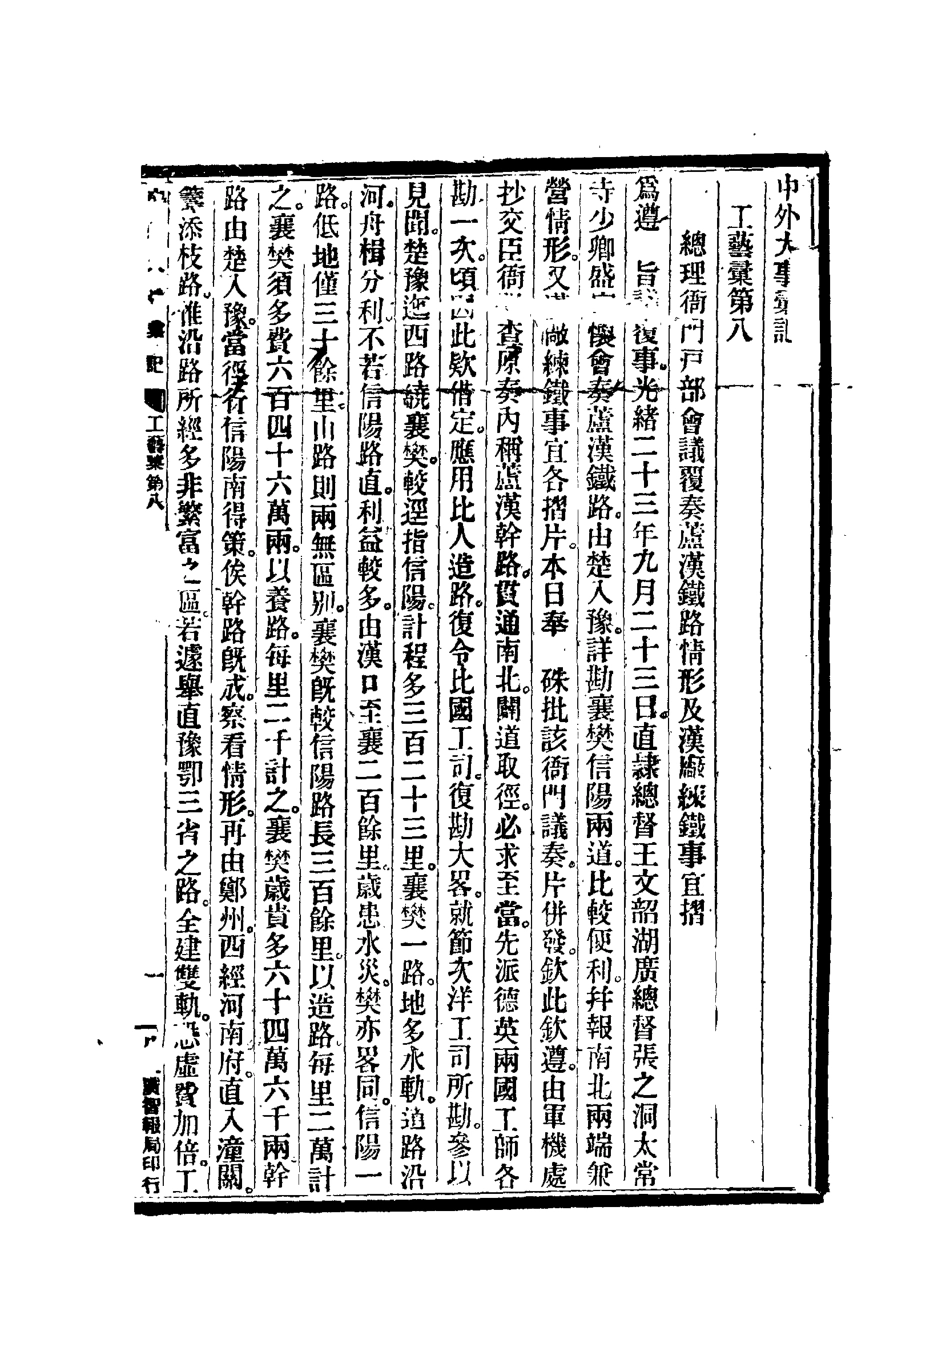 中外大事彙記
工藝彙第八
總理衙門戸部會議覆奏蘆漢鐵路情形及漢廠煉鐵事宜摺
爲遵 旨議復事。光緒二十三年九月二十三日。直隸總督王文韶湖廣總督張之洞太常
寺少卿盛宣懷會奏蘆漢鐵路。由楚入豫。詳勘襄樊信陽兩道。比較便利。幷報南北兩端興
營情形。又漢廠煉鐵事宜各摺片。本日奉 硃批該衙門議奏。片併發。欽此欽遵。由軍機處
抄交臣衙 查原奏內稱蘆漢幹路。貫通南北。闢道取徑。必求至當。先派德英兩國工師各
勘一次。頃因此欵借定。應用比人造路。復令比國工司。復勘大畧。就節次洋工司所勘。參以
見聞。楚豫迤西路繞襄樊。較逕指信陽。計程多三百二十三里。襄樊一路。地多水軌。道路沿
河。舟楫分利。不若信陽路直。利益較多。由漢口至襄二百餘里。歲患水災。樊亦畧同。信陽一
路。低地僅三十餘里。山路則兩無區別。襄樊既較信陽路長三百餘里。以造路每里二萬計
之。襄樊須多費六百四十六萬兩。以養路。每里二千計之。襄樊歲貴多六十四萬六千兩。幹
路由楚入豫。當徑行信陽。南得策。俟幹路既成。察看情形。再由鄭州。西經河南府。直入潼關。
繁添枝路。惟沿路所經多非繁富之區。若遽舉直豫鄂三省之路。全建雙軌。恐虛費加倍。工
彙記 工藝彙第八
一
廣智報局印行